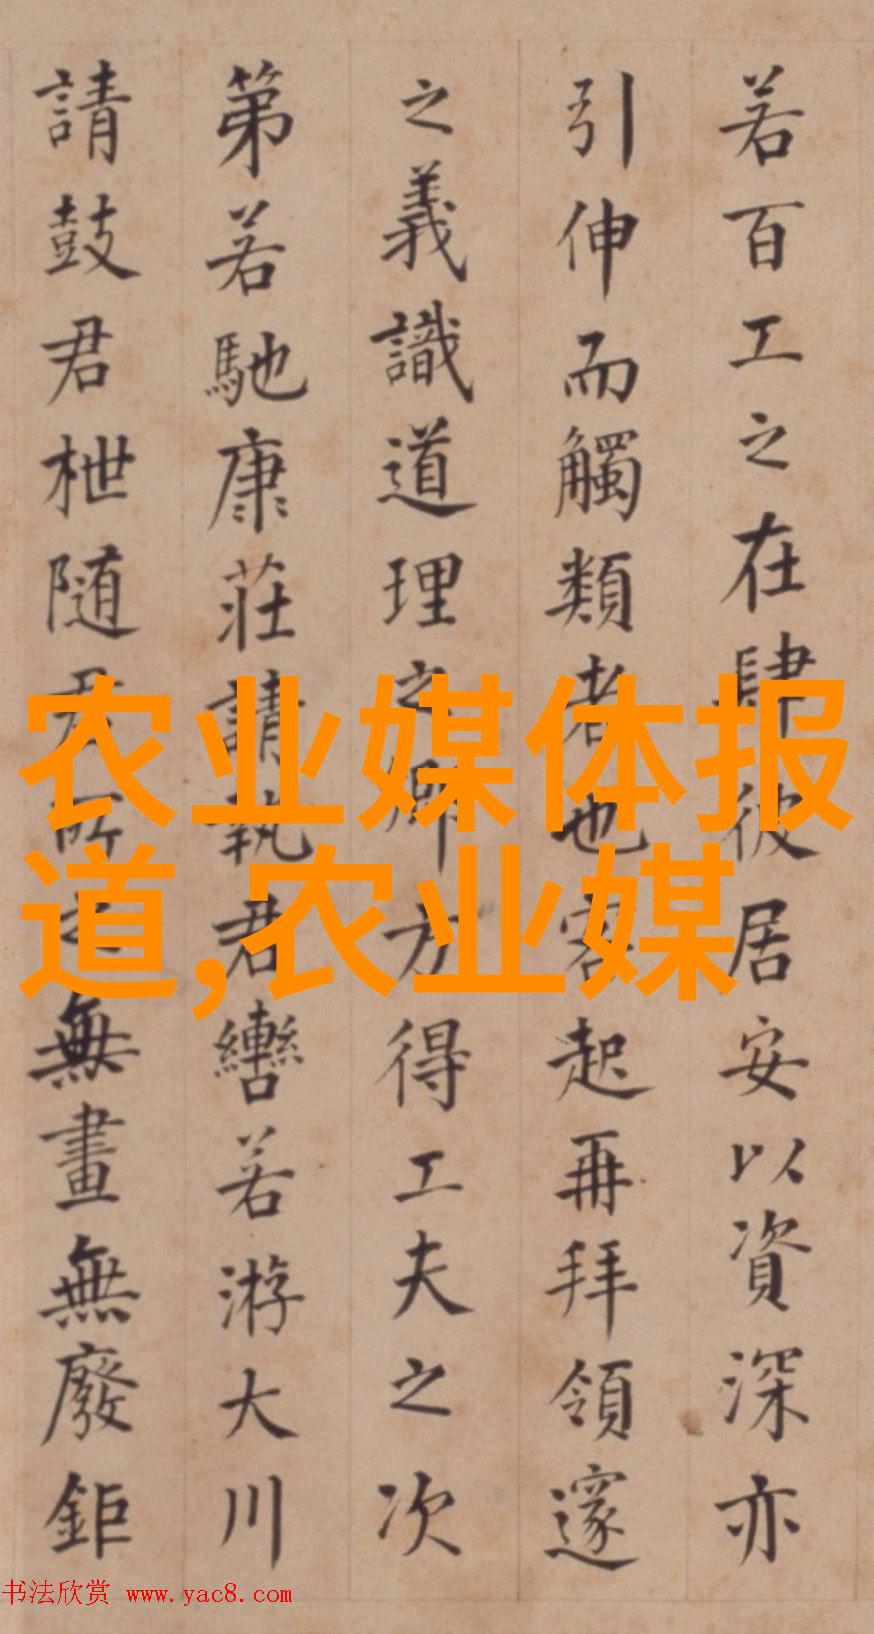 若百工之在肆彼居安以資深亦
引伸而觸類者也客起再拜領邃
之義識道理之鄉方得工夫之次
第若馳康莊請執君轡若游大川
請鼓君枻随君所之無畫無廢鉅
农业媒体报
道,农业媒
书法欣赏 www.yac8.com